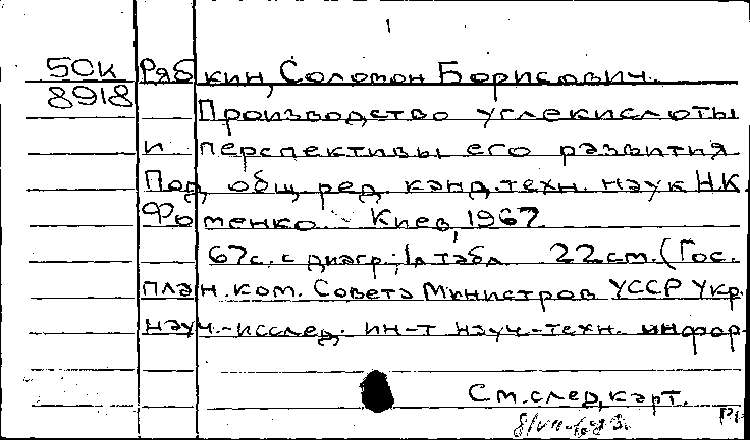 1
50К Рябкин, Соломон Борисович.
8918 Производство углекислоты
и перспективы его развития
Под общ. ред. канд. техн. наук Н.К.
Фоменко. Киев, 1967.
67с. с диагр.; 1л табл. 22 см. (Гос.
план. ком. Совета Министров УССР Укр.
науч.-исслед. ин-т науч.-техн. инфор-
См. след. карт.